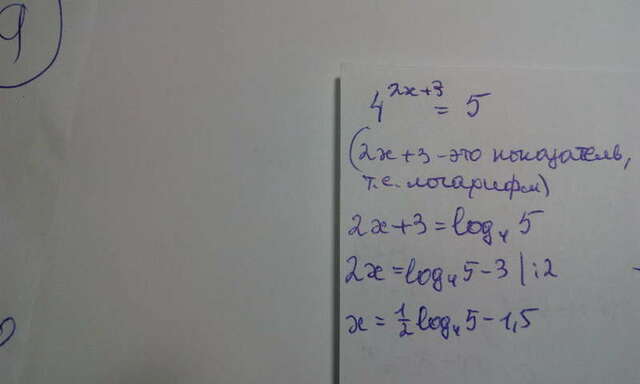 9
4^{2x+3} = 5
(2x+3 - это показатель,
т.е. логарифм)
2x+3 = log₄ 5
2x = log₄ 5 - 3 | :2
x = ½ log₄ 5 - 1,5